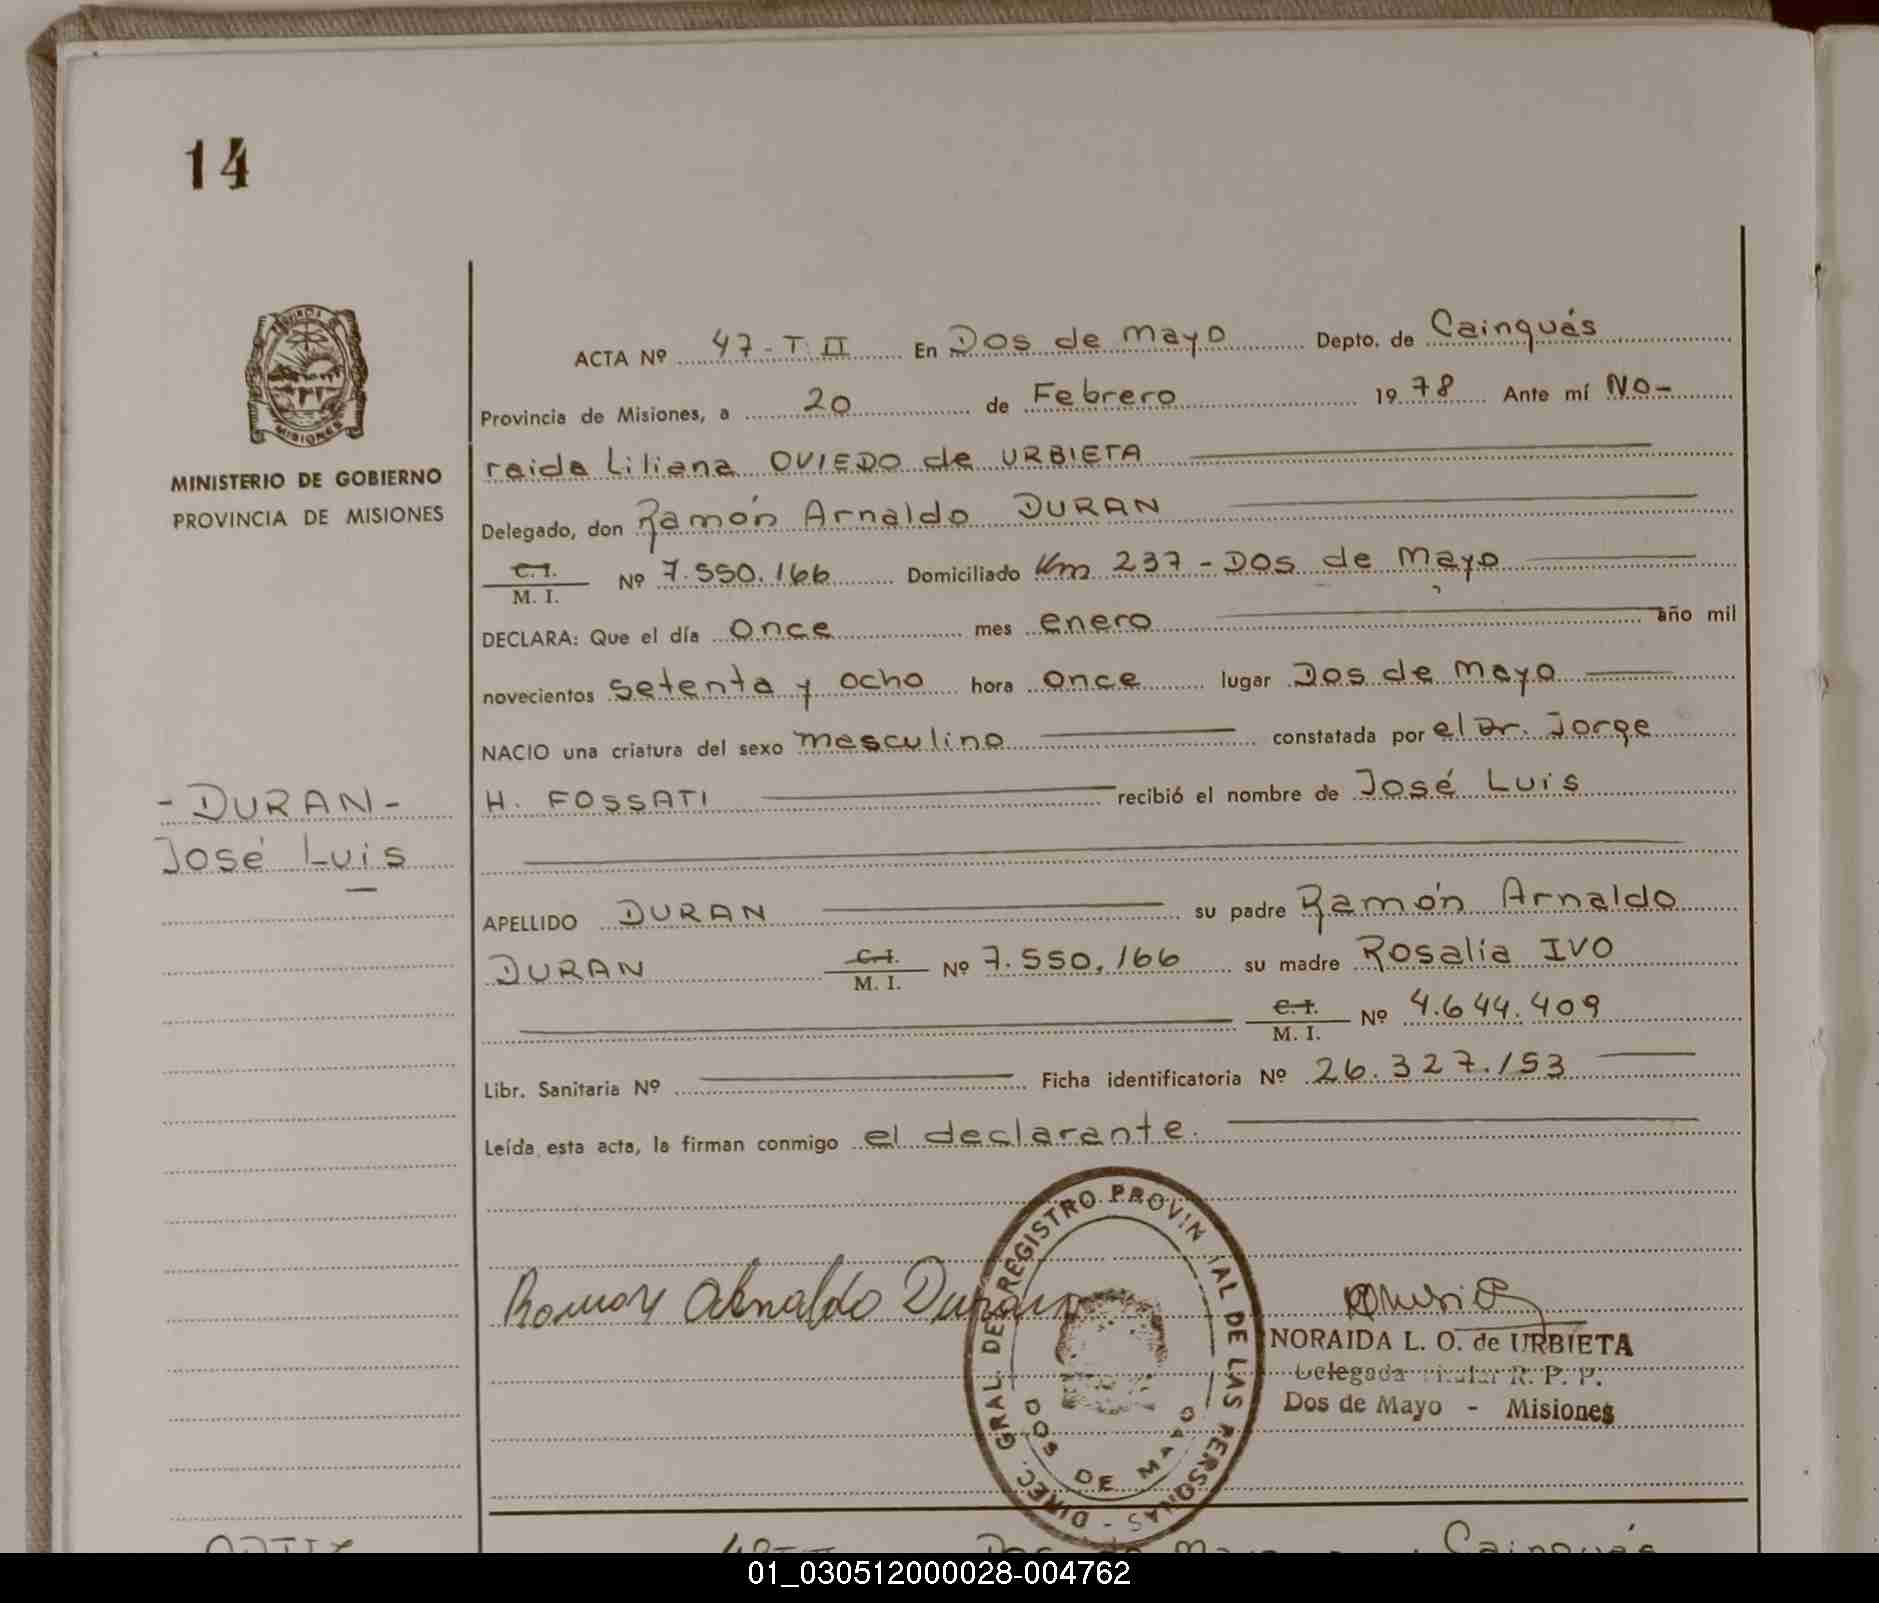 14
PROVINCIA DE
MISIONES
MINISTERIO DE GOBIERNO
PROVINCIA DE MISIONES
- DURAN -
José Luis
ACTA Nº 47-T II En Dos de Mayo Depto. de Cainguás
Provincia de Misiones, a 20 de Febrero 1978 Ante mí No-
raida Liliana OVIEDO de URBIETA
Delegado, don Ramón Arnaldo DURAN
C.I.
M. I. Nº 7.550.166 Domiciliado Km 237 - Dos de Mayo
DECLARA: Que el día once mes enero año mil
novecientos setenta y ocho hora once lugar Dos de Mayo
NACIO una criatura del sexo masculino constatada por el Dr. Jorge
H. FOSSATI recibió el nombre de José Luis
APELLIDO DURAN su padre Ramón Arnaldo
DURAN C.I. M. I. Nº 7.550.166 su madre Rosalia IVO
C.I. M. I. Nº 4.644.409
Libr. Sanitaria Nº Ficha identificatoria Nº 26.327.153
Leída esta acta, la firman conmigo el declarante.
Ramon Arnaldo Duran
DIREC. GRAL. DEL REGISTRO PROVINCIAL DE LAS PERSONAS -
DOS DE MAYO
NORAIDA L. O. de URBIETA
Delegada Titular R. P. P.
Dos de Mayo - Misiones
01_030512000028-004762